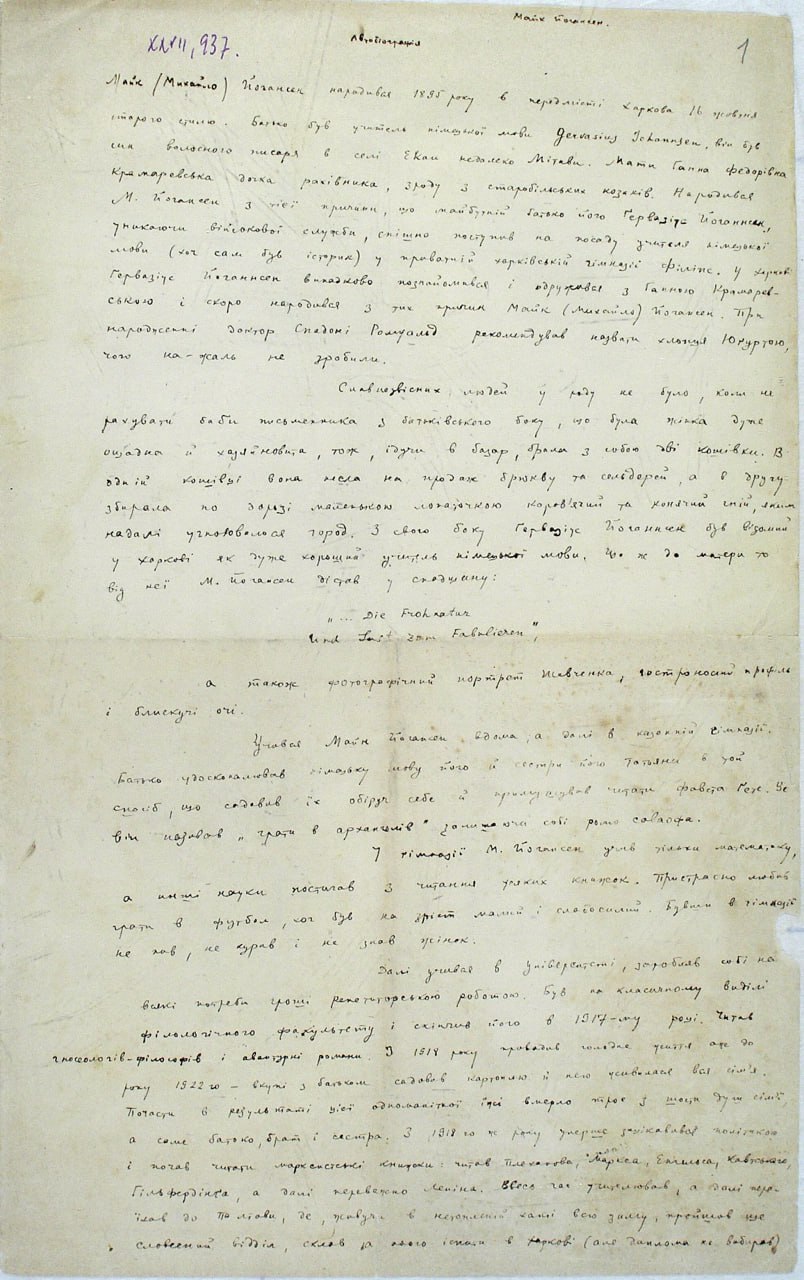 Майк Йогансен.
XLVII, 937.
Автобіографія
1
Майк (Михайло) Йогансен народився 1895 року в передмісті Харкова 16 жовтня
старого стилю. Батько був учитель німецької мови Gervasius Johannsen, він був
син волосного писаря в селі Екаи недалеко Мітави. Мати Ганна Федорівна
Крамаревська дочка раківника, зроду з старобільських козаків. Народився
М. Йогансен з тієї причини, що майбутній батько його Гервазіус Йоганнсен,
уникаючи військової служби, спішно поступив на посаду учителя німецької
мови (хоч сам був історик) у приватній харківській гімназії Філіпс. У Харкові
Гервазіус Йоганнсен випадково познайомився і одружився з Ганною Крамарев-
ською і скоро народився з тих причин Майк (Михайло) Йогансен. При
народженні доктор Спадоні Ромуальд рекомендував назвати хлопця Югуртою,
чого на-жаль не зробили.
Славнозвісних людей у роду не було, коли не
рахувати баби письменника з батьківського боку, що була жінка дуже
ощадна й хазяйновита, тож, ідучи в базар, брала з собою дві кошівки. В
одній кошівці вона несла на продаж брюкву та сельдерей, а в другу
збирала по дорозі маленькою лопаточкою коров'ячий та конячий гній, яким
надалі угноювалося город. З свого боку Гервазіус Йоганнсен був відомий
у Харкові як дуже хороший учитель німецької мови. Що ж до матери то
від неї М. Йогансен дістав у спадщину:
„... Die Frohnatur
Und Lust zum Fabulieren",
а також фотографічний портрет Шевченка, гостроносий профіль
і блискучі очі.
Учився Майк Йогансен вдома, а далі в казенній гімназії.
Батько удосконалював німецьку мову його й сестри його Татьяни в той
спосіб, що садовив їх обіруч себе й примушував читати Фавста Гете. Це
він називав „грати в архангелів" залишаючи собі ролю саваофа.
У гімназії М. Йогансен учив тільки математику,
а инші науки постигав з читання усяких книжок. Пристрасно любив
грати в футбол, хоч був на зріст малий і слабосилий. Бувши в гімназії
не пив, не курив і не знав жінок.
Далі учився в Університеті, заробляв собі на
всякі потреби гроші репетиторською роботою. Був на класичному виділі
філологічного факультету і скінчив його в 1917-му році. Читав
гносеологів-філософів і авантурні романи. З 1918 року провадив голодне життя аж до
року 1922го – вкупі з батьком садовив картоплю й нею живилася вся сім'я.
Почасти в результаті цієї одноманітної їжі вмерло троє з шости душ сім'ї,
а саме батько, брат і сестра. З 1918го ж року уперше зацікавився політикою
і почав читати марксистські книжки: читав Плеханова, Маркса, Енгельса, Кавтського,
Гільфердінга, а далі переважно Леніна. Ввесь час учителював, а далі пере-
їхав до Полтави, де, живучи в нетопленій хаті всю зиму, пройшов ще
словесний відділ, склав за нього іспити в Харкові (але диплома не вибирав)